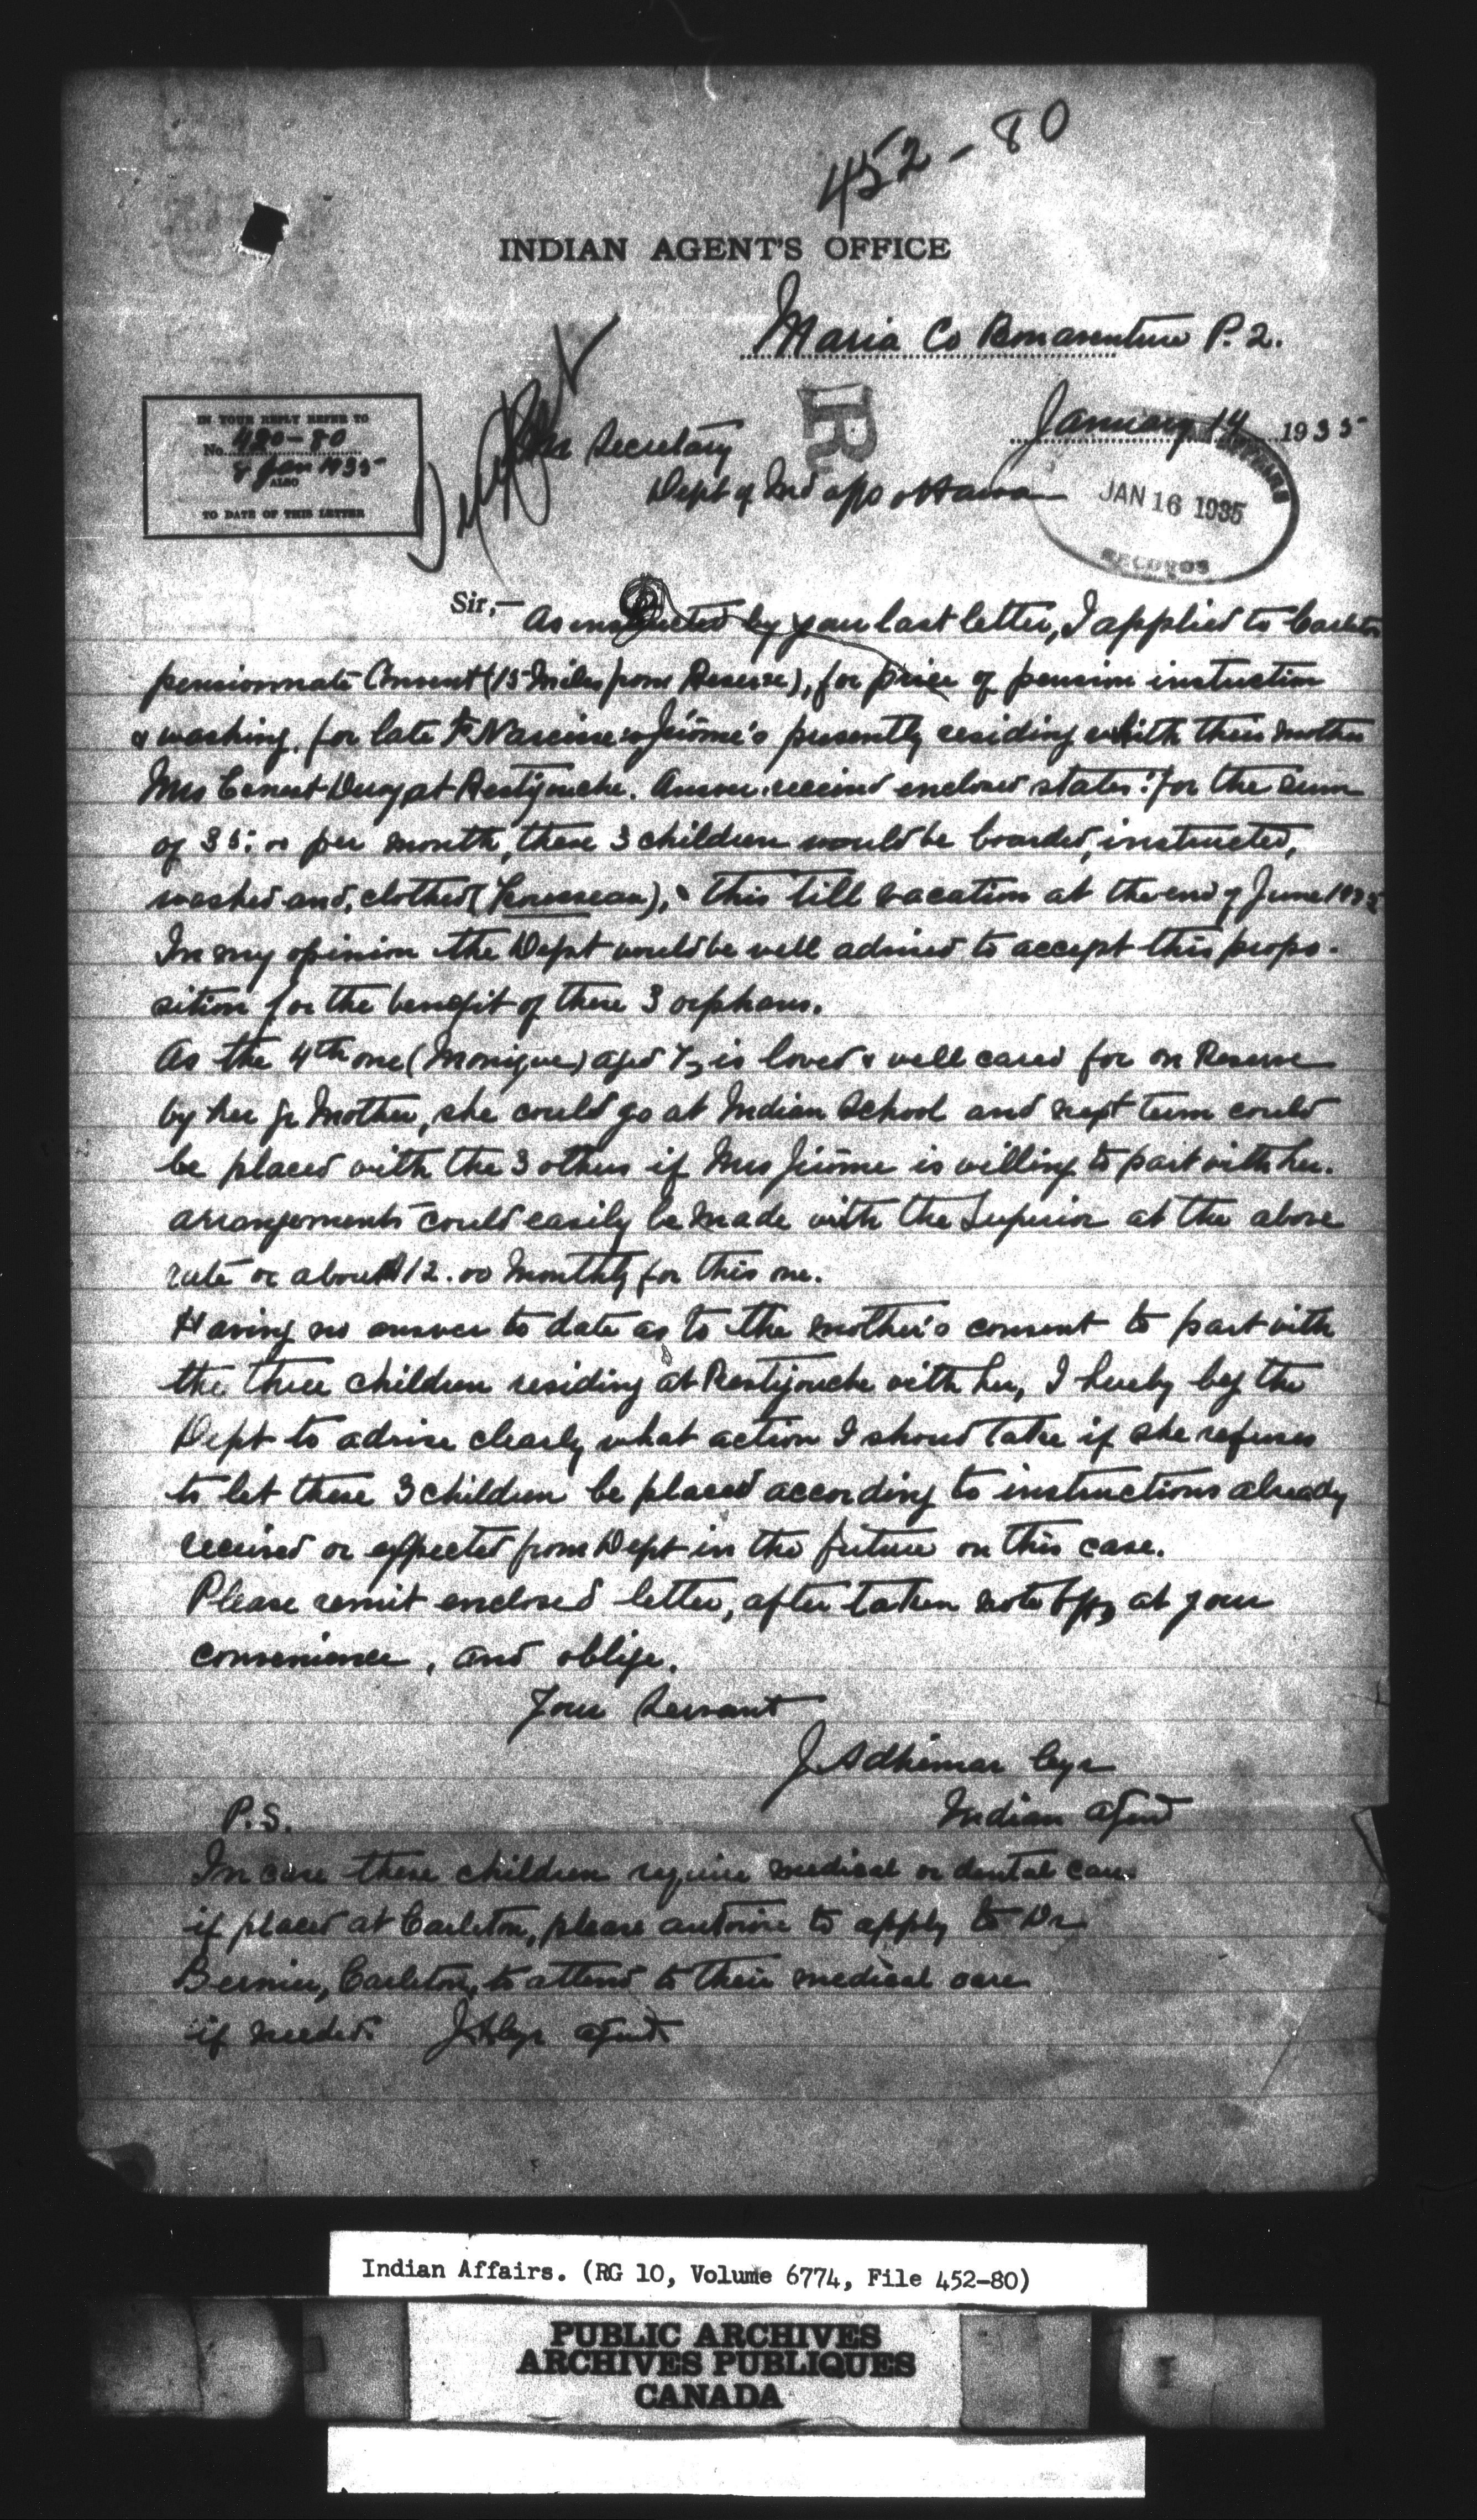 452-80
INDIAN AGENT'S OFFICE
Maria Co Bonaventure P. 2.
IN YOUR REPLY REFER TO
No. 420-80
8 Jan 1935
ALSO
TO DATE OF THIS LETTER
R
January 14 1935
The Secretary
Dept of Ind affs ottawa
AFFAIRS
JAN 16 1935
RECORDS
Sir,- As instructed by your last letter, I applied to Carleton
pensionnate Convent (15 Miles from Reserve), for price of pension instruction
& washing, for late Narcisse Jérôme's presently residing with their mother
Mrs at Restigouche. Answer received enclosed states: for the sum
of 35.00 per month, these 3 children would be boarded, instructed,
washed and, clothed (Trousseau), this till vacation at the end of June 1935
In my opinion the Dept would be well advised to accept this propo-
sition for the benefit of these 3 orphans.
As the 4th one (Monique) aged 7, is loved & well cared for on Reserve
by her gr Mother, she could go at Indian School and next term could
be placed with the 3 others if Mrs Jérôme is willing to part with her.
arrangements could easily be made with the Superior at the above
rate or about $12.00 Monthly for this one.
Having no answer to date as to the mother's consent to part with
the three children residing at Restigouche with her, I hereby beg the
Dept to advise clearly what action I should take if she refuses
to let these 3 children be placed according to instructions already
received or expected from Dept in the future on this case.
Please remit enclosed letter, after taken note at your
convenience, and oblige.
Your Servant
J. Adhemar Cyr
Indian Agent
P.S.
In case these children require medical or dental care
if placed at Carleton, please autorise to apply to Dr
Bernier, Carleton, to attend to their medical care
if needed. J.A. Cyr agent
Indian Affairs. (RG 10, Volume 6774, File 452-80)
PUBLIC ARCHIVES
ARCHIVES PUBLIQUES
CANADA